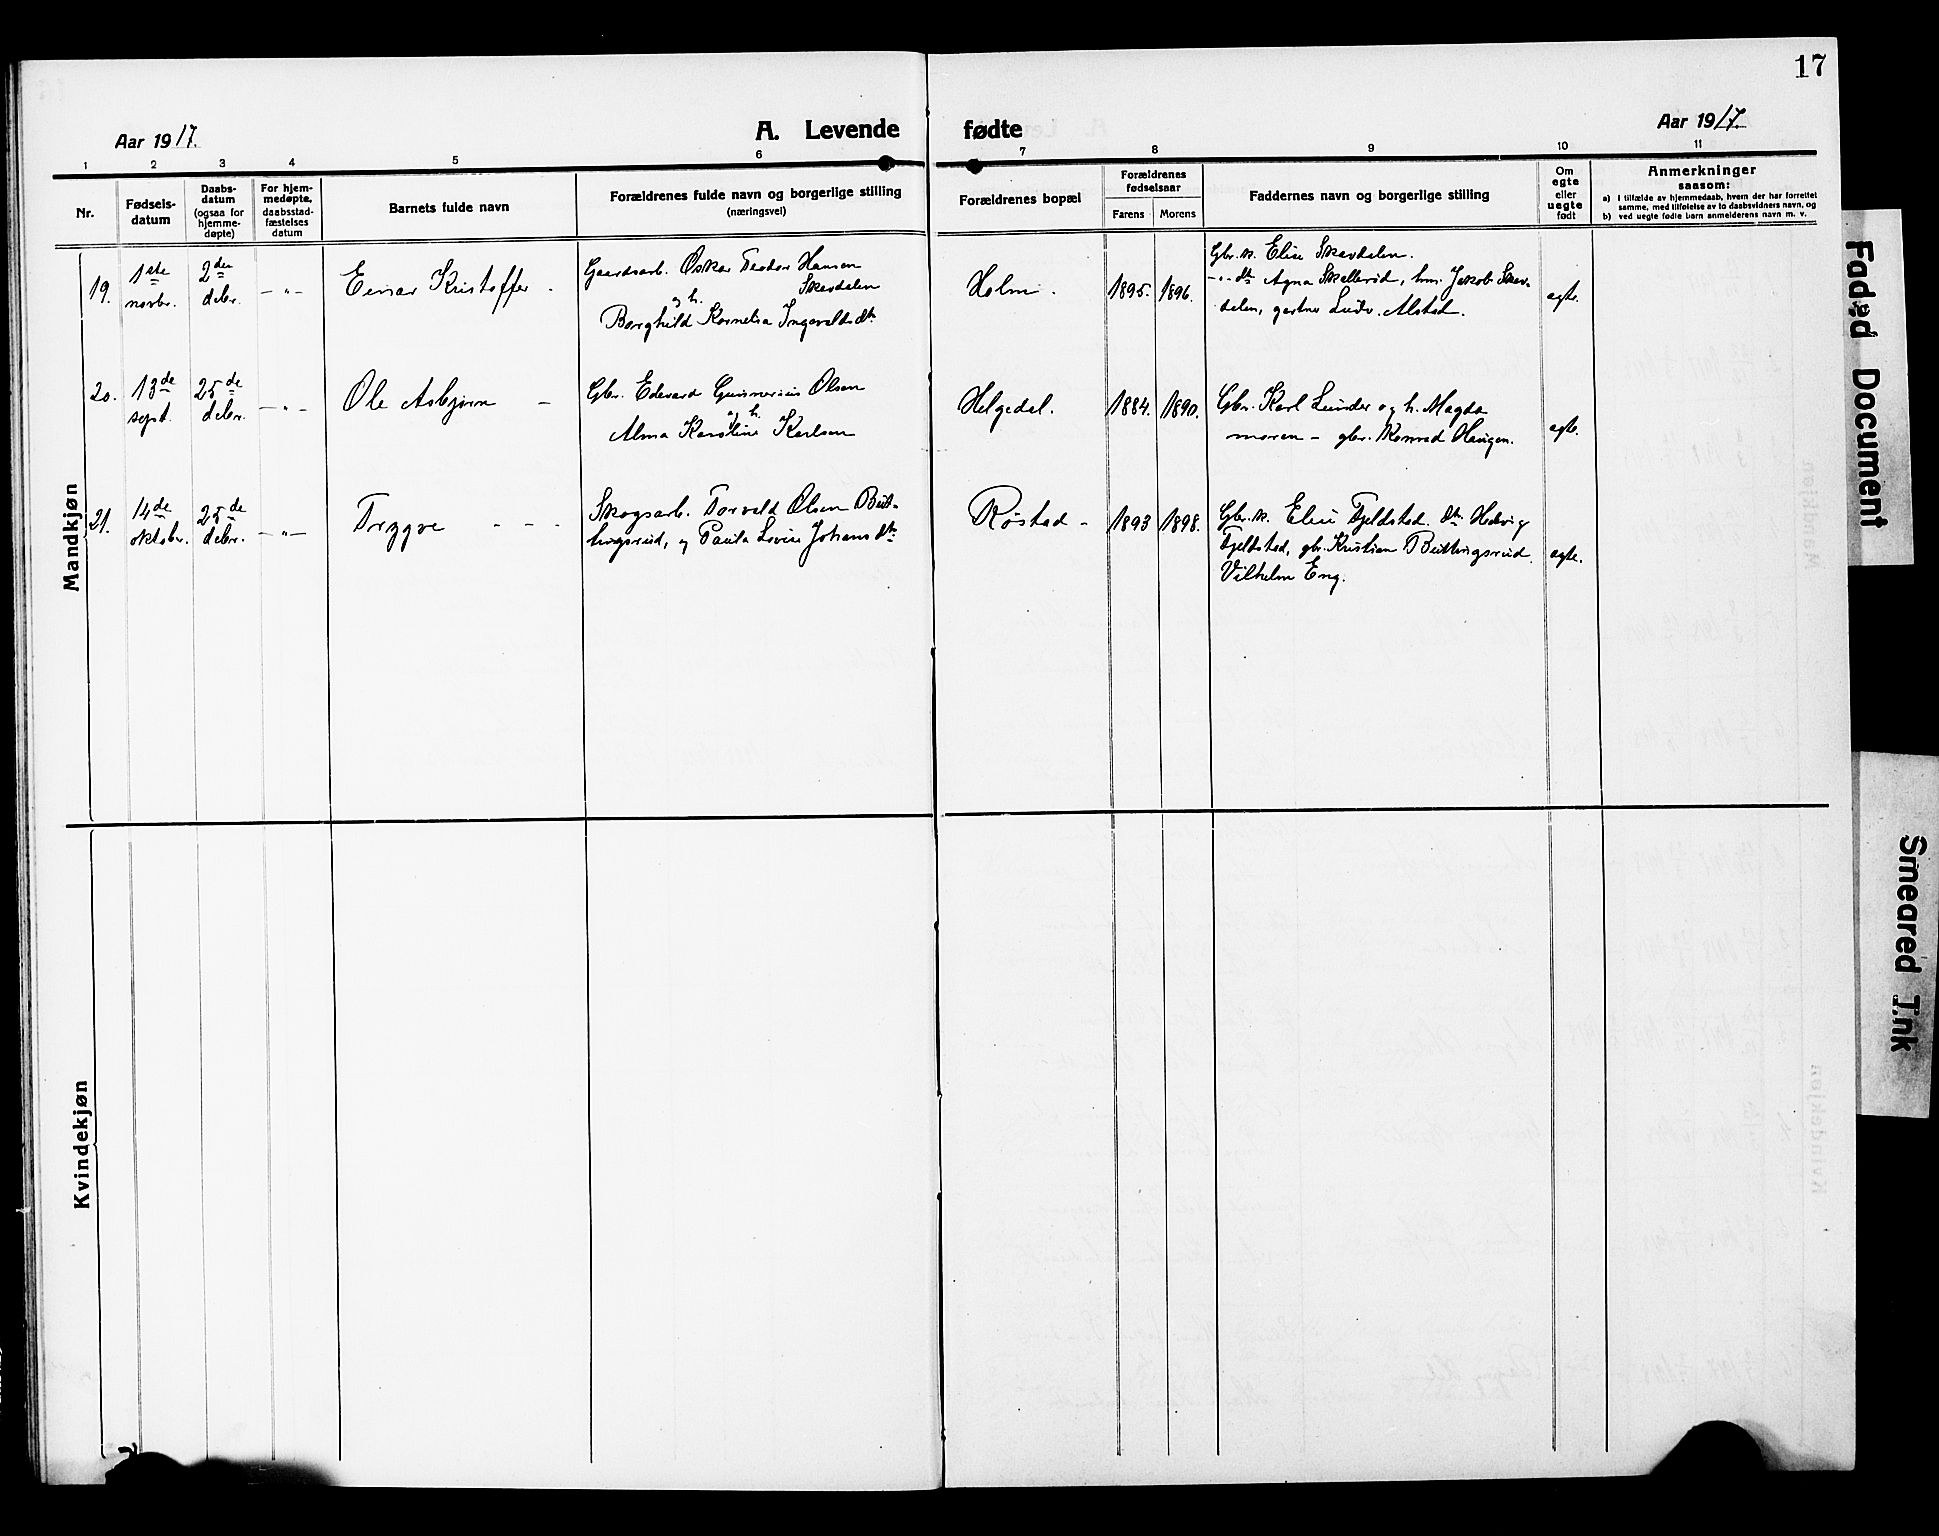 17
Aar 1917.
A. Levende fødte
Aar 1917.
1 2 3 4 5 6 7 8 9 10 11
Nr.
Fødselsdatum
Daabsdatum (ogsaa for hjemmedøpte)
For hjemmedøpte, daabsstadfæstelses datum
Barnets fulde navn
Forældrenes fulde navn og borgerlige stilling (næringsvei)
Forældrenes bopæl
Forældrenes fødselsaar
Farens Morens
Faddernes navn og borgerlige stilling
Om egte eller uegte født
Anmerkninger
saasom:
a) i tilfælde av hjemmedaab, hvem der har forrettet samme, med tilføielse av to daabsvidners navn, og
b) ved uegte fødte barn anmelderens navn m. v.
Mandkjøn
19. 1ste novbr. 2den debr. — „ — Einar Kristoffer
Gaardsarb. Oskar Teodor Hansen
Skavdalen
og h.
Borghild Kornelia Ingevaldsdtr.
Holm. 1895. 1896.
Gbr.k. Elise Skavdalen.
—„— dtr Agna Skallerød, hm. Jakob Skavdalen, gartner Ludv. Alstad.
egte.
20. 13de sept. 25de debr. — „ — Ole Asbjørn —
Gbr. Edvard Gunnerius Olsen
og h.
Alma Karoline Karlsen
Helgedal. 1884. 1890.
Gbr. Karl Lunder og h. Magda
moren — gbr. Konrad Haugen.
egte.
21. 14de oktobr. 25de debr. — „ — Trygve - - -
Skogsarb. Torvald Olsen Buttingsrud, og Paula Lovise Johansdtr
Røstad - 1893 1898.
Gbr.k. Elise Fjeldstad. Dtr Hedvig
Fjeldstad, gbr. Kristian Buttingsrud.
Vilhelm Eng.
egte.
Kvindekjøn
Faded Document
Smeared Ink